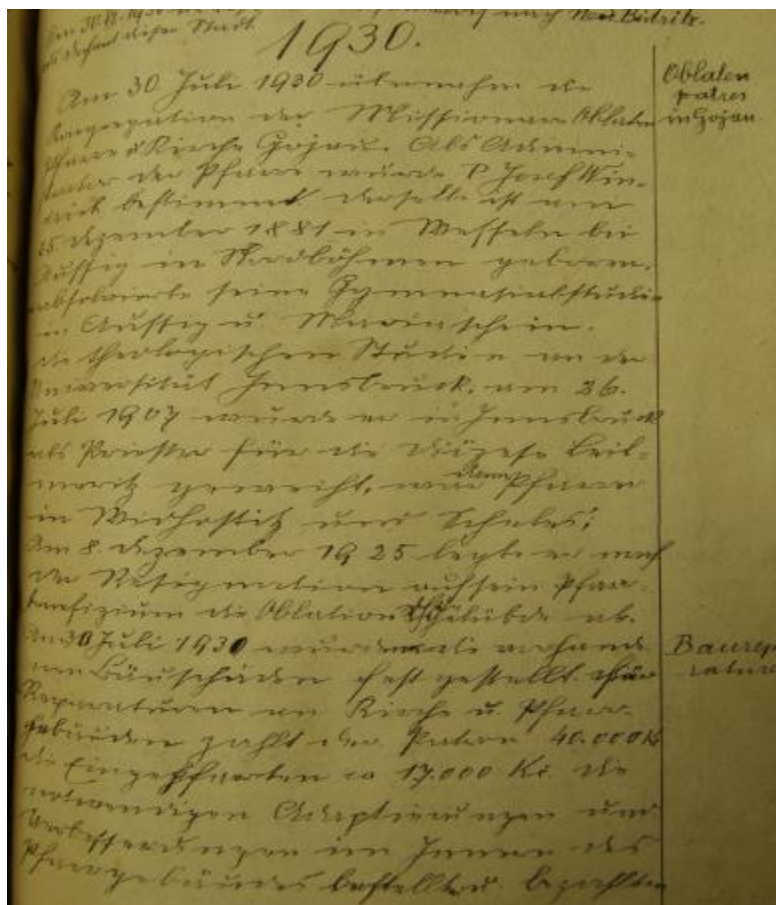 als Dechant dieser Stadt. nach Neu Bistritz.
1930.
Am 30 Juli 1930 übernahm die
Kongregation der Missionare Oblaten
Pfarre u Kirche Gojau. Als Admini-
strator der Pfarre wurde P. Josef
bestimmt derselbe ist am
15. Dezember 1881 in Wesseln bei
Aussig in Nordböhmen geboren,
absolvierte seine Gymnasialstudien
in Aussig u Mariaschein.
die theologischen Studien an der
Universität Innsbruck. am 26.
Juli 1907 wurde er in Innsbruck
als Priester für die Diözese Leit-
meritz geweiht, war dann Pfarrer
in und Scheles;
Am 8. Dezember 1925 legte er nach
der Resignation auf sein Pfarr-
benefizium die Oblation Gelübde ab.
Am 30 Juli 1930 wurden die vorhande-
nen Bauschäden festgestellt. Für
Reparaturen an Kirche u. Pfarr-
gebäuden zahlt der Patron 40.000 Kč
die Eingepfarrten ca 17.000 Kč. die
notwendigen Adaptierungen und
Verbesserungen im Innern des
Pfarrgebäudes bestellte u. bezahlten
Oblaten
patres
in Gojau.
Baurepa
rature